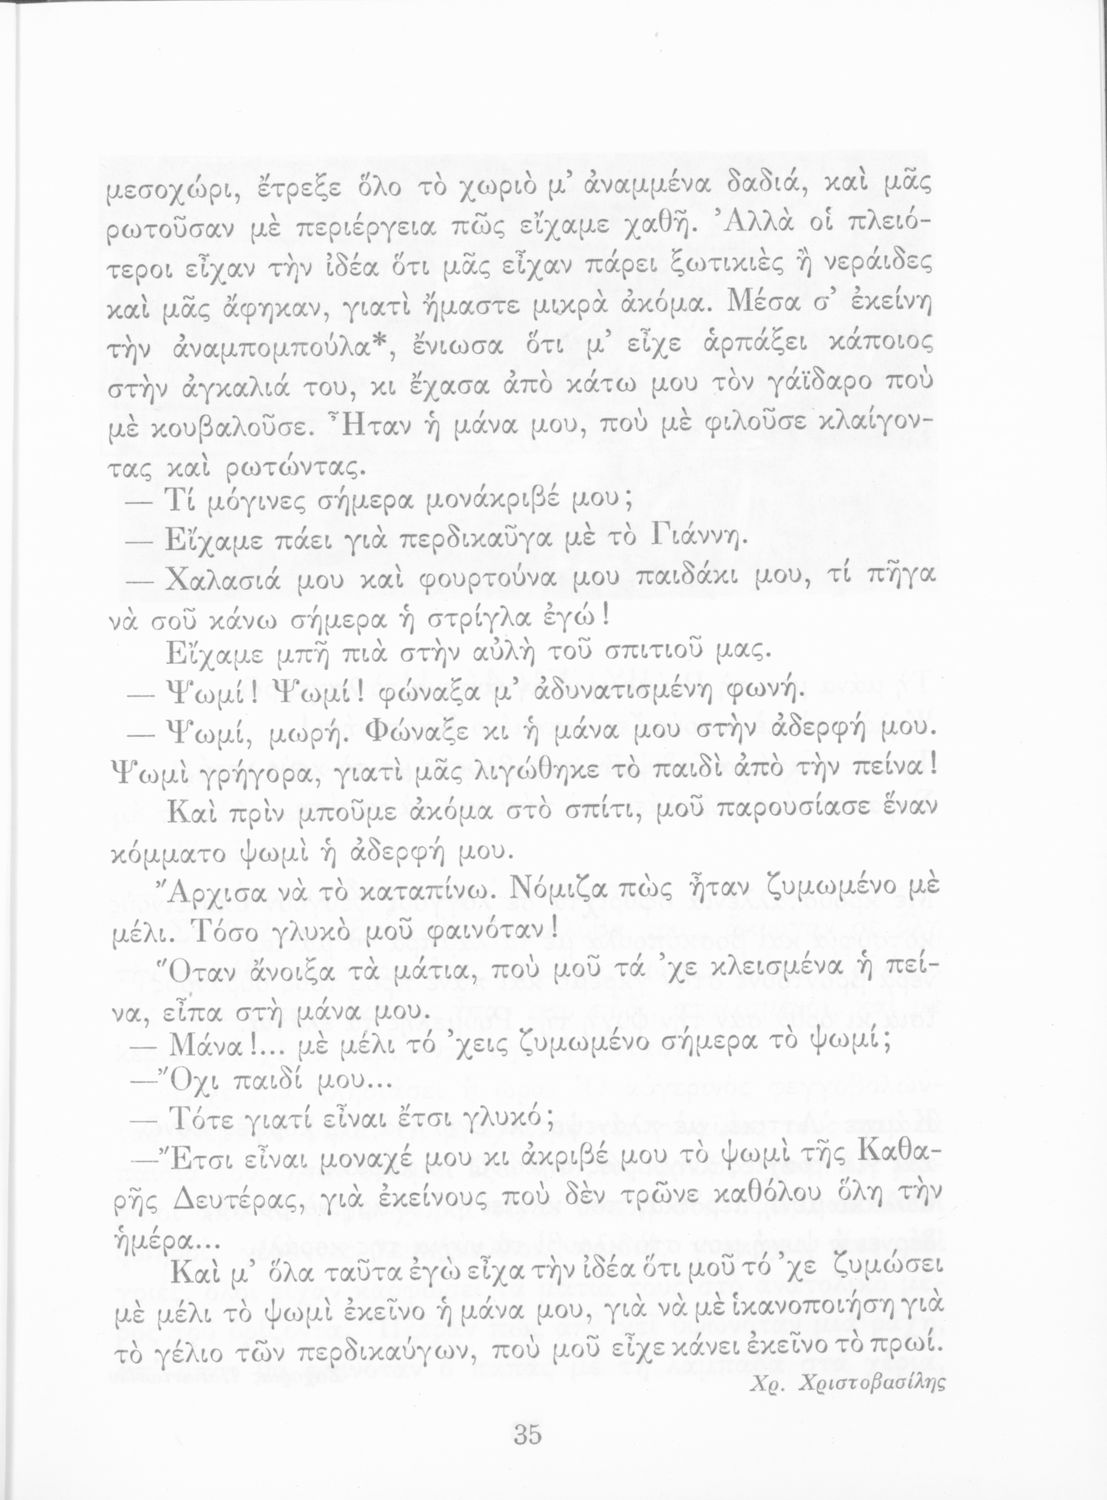 μεσοχώρι, ἔτρεξε ὅλο τὸ χωριὸ μ’ ἀναμμένα δαδιά, καὶ μᾶς
ρωτοῦσαν μὲ περιέργεια πῶς εἴχαμε χαθῆ. ᾽Αλλὰ οἱ πλειό-
τεροι εἶχαν τὴν ἰδέα ὅτι μᾶς εἶχαν πάρει ξωτικιὲς ἢ νεράιδες
καὶ μᾶς ἄφηκαν, γιατὶ ἤμαστε μικρὰ ἀκόμα. Μέσα σ’ ἐκείνη
τὴν ἀναμπομπούλα*, ἔνιωσα ὅτι μ’ εἶχε ἁρπάξει κάποιος
στὴν ἀγκαλιά του, κι ἔχασα ἀπὸ κάτω μου τὸν γάϊδαρο ποὺ
μὲ κουβαλοῦσε. Ἦταν ἡ μάνα μου, ποὺ μὲ φιλοῦσε κλαίγον-
τας καὶ ρωτώντας.
— Τί μόγινες σήμερα μονάκριβέ μου;
— Εἴχαμε πάει γιὰ περδικαῦγα μὲ τὸ Γιάννη.
— Χαλασιά μου καὶ φουρτούνα μου παιδάκι μου, τί πῆγα
νὰ σοῦ κάνω σήμερα ἡ στρίγλα ἐγώ!
Εἴχαμε μπῆ πιὰ στὴν αὐλὴ τοῦ σπιτιοῦ μας.
— Ψωμί! Ψωμί! φώναξα μ’ ἀδυνατισμένη φωνή.
— Ψωμί, μωρή. Φώναξε κι ἡ μάνα μου στὴν ἀδερφή μου.
Ψωμὶ γρήγορα, γιατὶ μᾶς λιγώθηκε τὸ παιδὶ ἀπὸ τὴν πείνα!
Καὶ πρὶν μποῦμε ἀκόμα στὸ σπίτι, μοῦ παρουσίασε ἕναν
κόμματο ψωμὶ ἡ ἀδερφή μου.
Ἄρχισα νὰ τὸ καταπίνω. Νόμιζα πὼς ἦταν ζυμωμένο μὲ
μέλι. Τόσο γλυκὸ μοῦ φαινόταν!
Ὅταν ἄνοιξα τὰ μάτια, ποὺ μοῦ τά ’χε κλεισμένα ἡ πεί-
να, εἶπα στὴ μάνα μου.
— Μάνα!... μὲ μέλι τό ’χεις ζυμωμένο σήμερα τὸ ψωμί;
—Ὄχι παιδί μου...
— Τότε γιατί εἶναι ἔτσι γλυκό;
—Ἔτσι εἶναι μοναχέ μου κι ἀκριβέ μου τὸ ψωμὶ τῆς Καθα-
ρῆς Δευτέρας, γιὰ ἐκείνους ποὺ δὲν τρῶνε καθόλου ὅλη τὴν
ἡμέρα...
Καὶ μ’ ὅλα ταῦτα ἐγὼ εἶχα τὴν ἰδέα ὅτι μοῦ τό ’χε ζυμώσει
μὲ μέλι τὸ ψωμὶ ἐκεῖνο ἡ μάνα μου, γιὰ νὰ μὲ ἱκανοποιήση γιὰ
τὸ γέλιο τῶν περδικαύγων, ποὺ μοῦ εἶχε κάνει ἐκεῖνο τὸ πρωί.
Χρ. Χριστοβασίλης
35